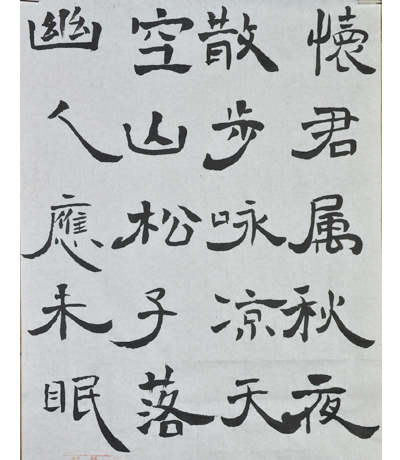 懷君属秋夜
散步咏凉天
空山松子落
幽人應未眠